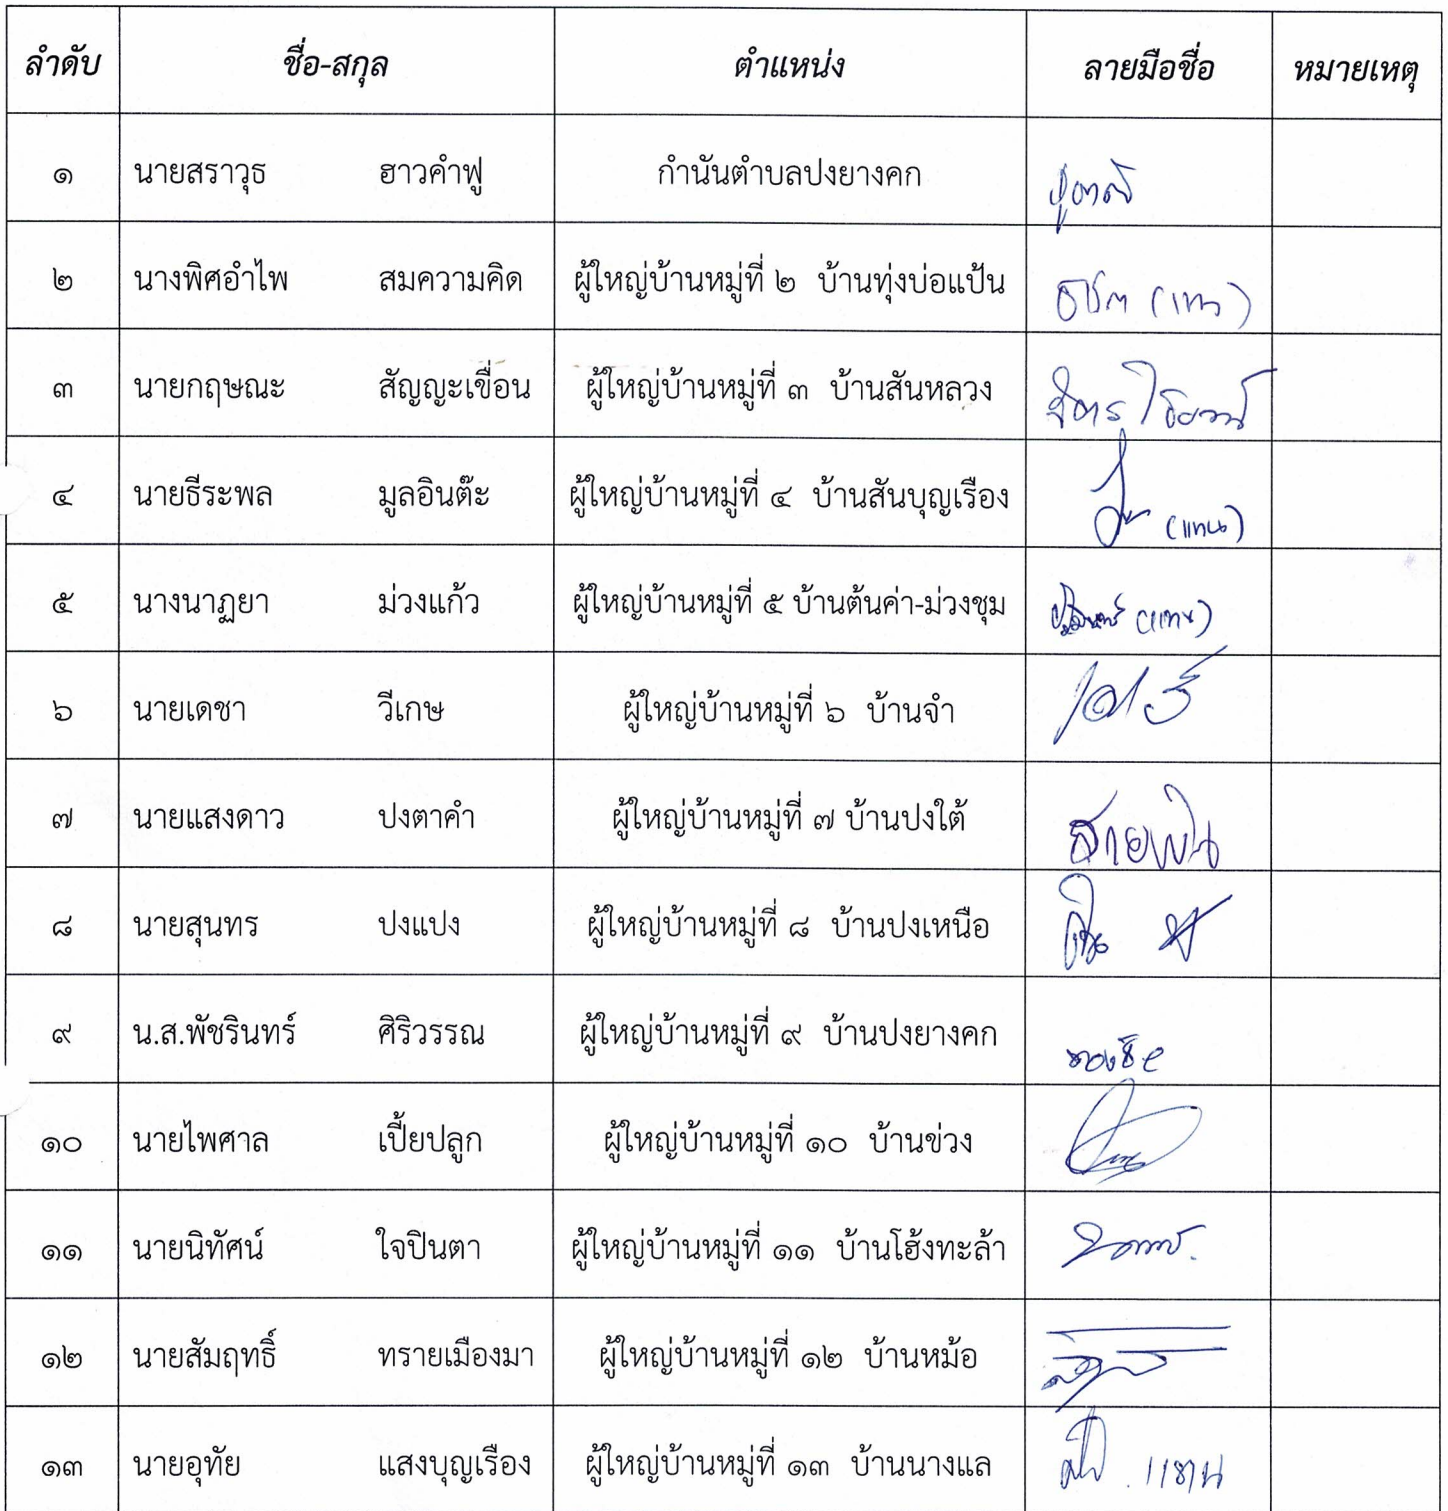 ลำดับ ชื่อ-สกุล ตำแหน่ง ลายมือชื่อ หมายเหตุ
๑ นายสราวุธ ฮาวคำฟู กำนันตำบลปงยางคก
๒ นางพิศอำไพ สมความคิด ผู้ใหญ่บ้านหมู่ที่ ๒ บ้านทุ่งบ่อแป้น
๓ นายกฤษณะ สัญญะเขื่อน ผู้ใหญ่บ้านหมู่ที่ ๓ บ้านสันหลวง
๔ นายธีระพล มูลอินต๊ะ ผู้ใหญ่บ้านหมู่ที่ ๔ บ้านสันบุญเรือง (แทน)
๕ นางนาฏยา ม่วงแก้ว ผู้ใหญ่บ้านหมู่ที่ ๕ บ้านต้นค่า-ม่วงชุม (แทน)
๖ นายเดชา วีเกษ ผู้ใหญ่บ้านหมู่ที่ ๖ บ้านจำ
๗ นายแสงดาว ปงตาคำ ผู้ใหญ่บ้านหมู่ที่ ๗ บ้านปงใต้
๘ นายสุนทร ปงแปง ผู้ใหญ่บ้านหมู่ที่ ๘ บ้านปงเหนือ
๙ น.ส.พัชรินทร์ ศิริวรรณ ผู้ใหญ่บ้านหมู่ที่ ๙ บ้านปงยางคก
๑๐ นายไพศาล เปี้ยปลูก ผู้ใหญ่บ้านหมู่ที่ ๑๐ บ้านข่วง
๑๑ นายนิทัศน์ ใจปินตา ผู้ใหญ่บ้านหมู่ที่ ๑๑ บ้านโฮ้งทะล้า
๑๒ นายสัมฤทธิ์ ทรายเมืองมา ผู้ใหญ่บ้านหมู่ที่ ๑๒ บ้านหม้อ
๑๓ นายอุทัย แสงบุญเรือง ผู้ใหญ่บ้านหมู่ที่ ๑๓ บ้านนางแล แทน